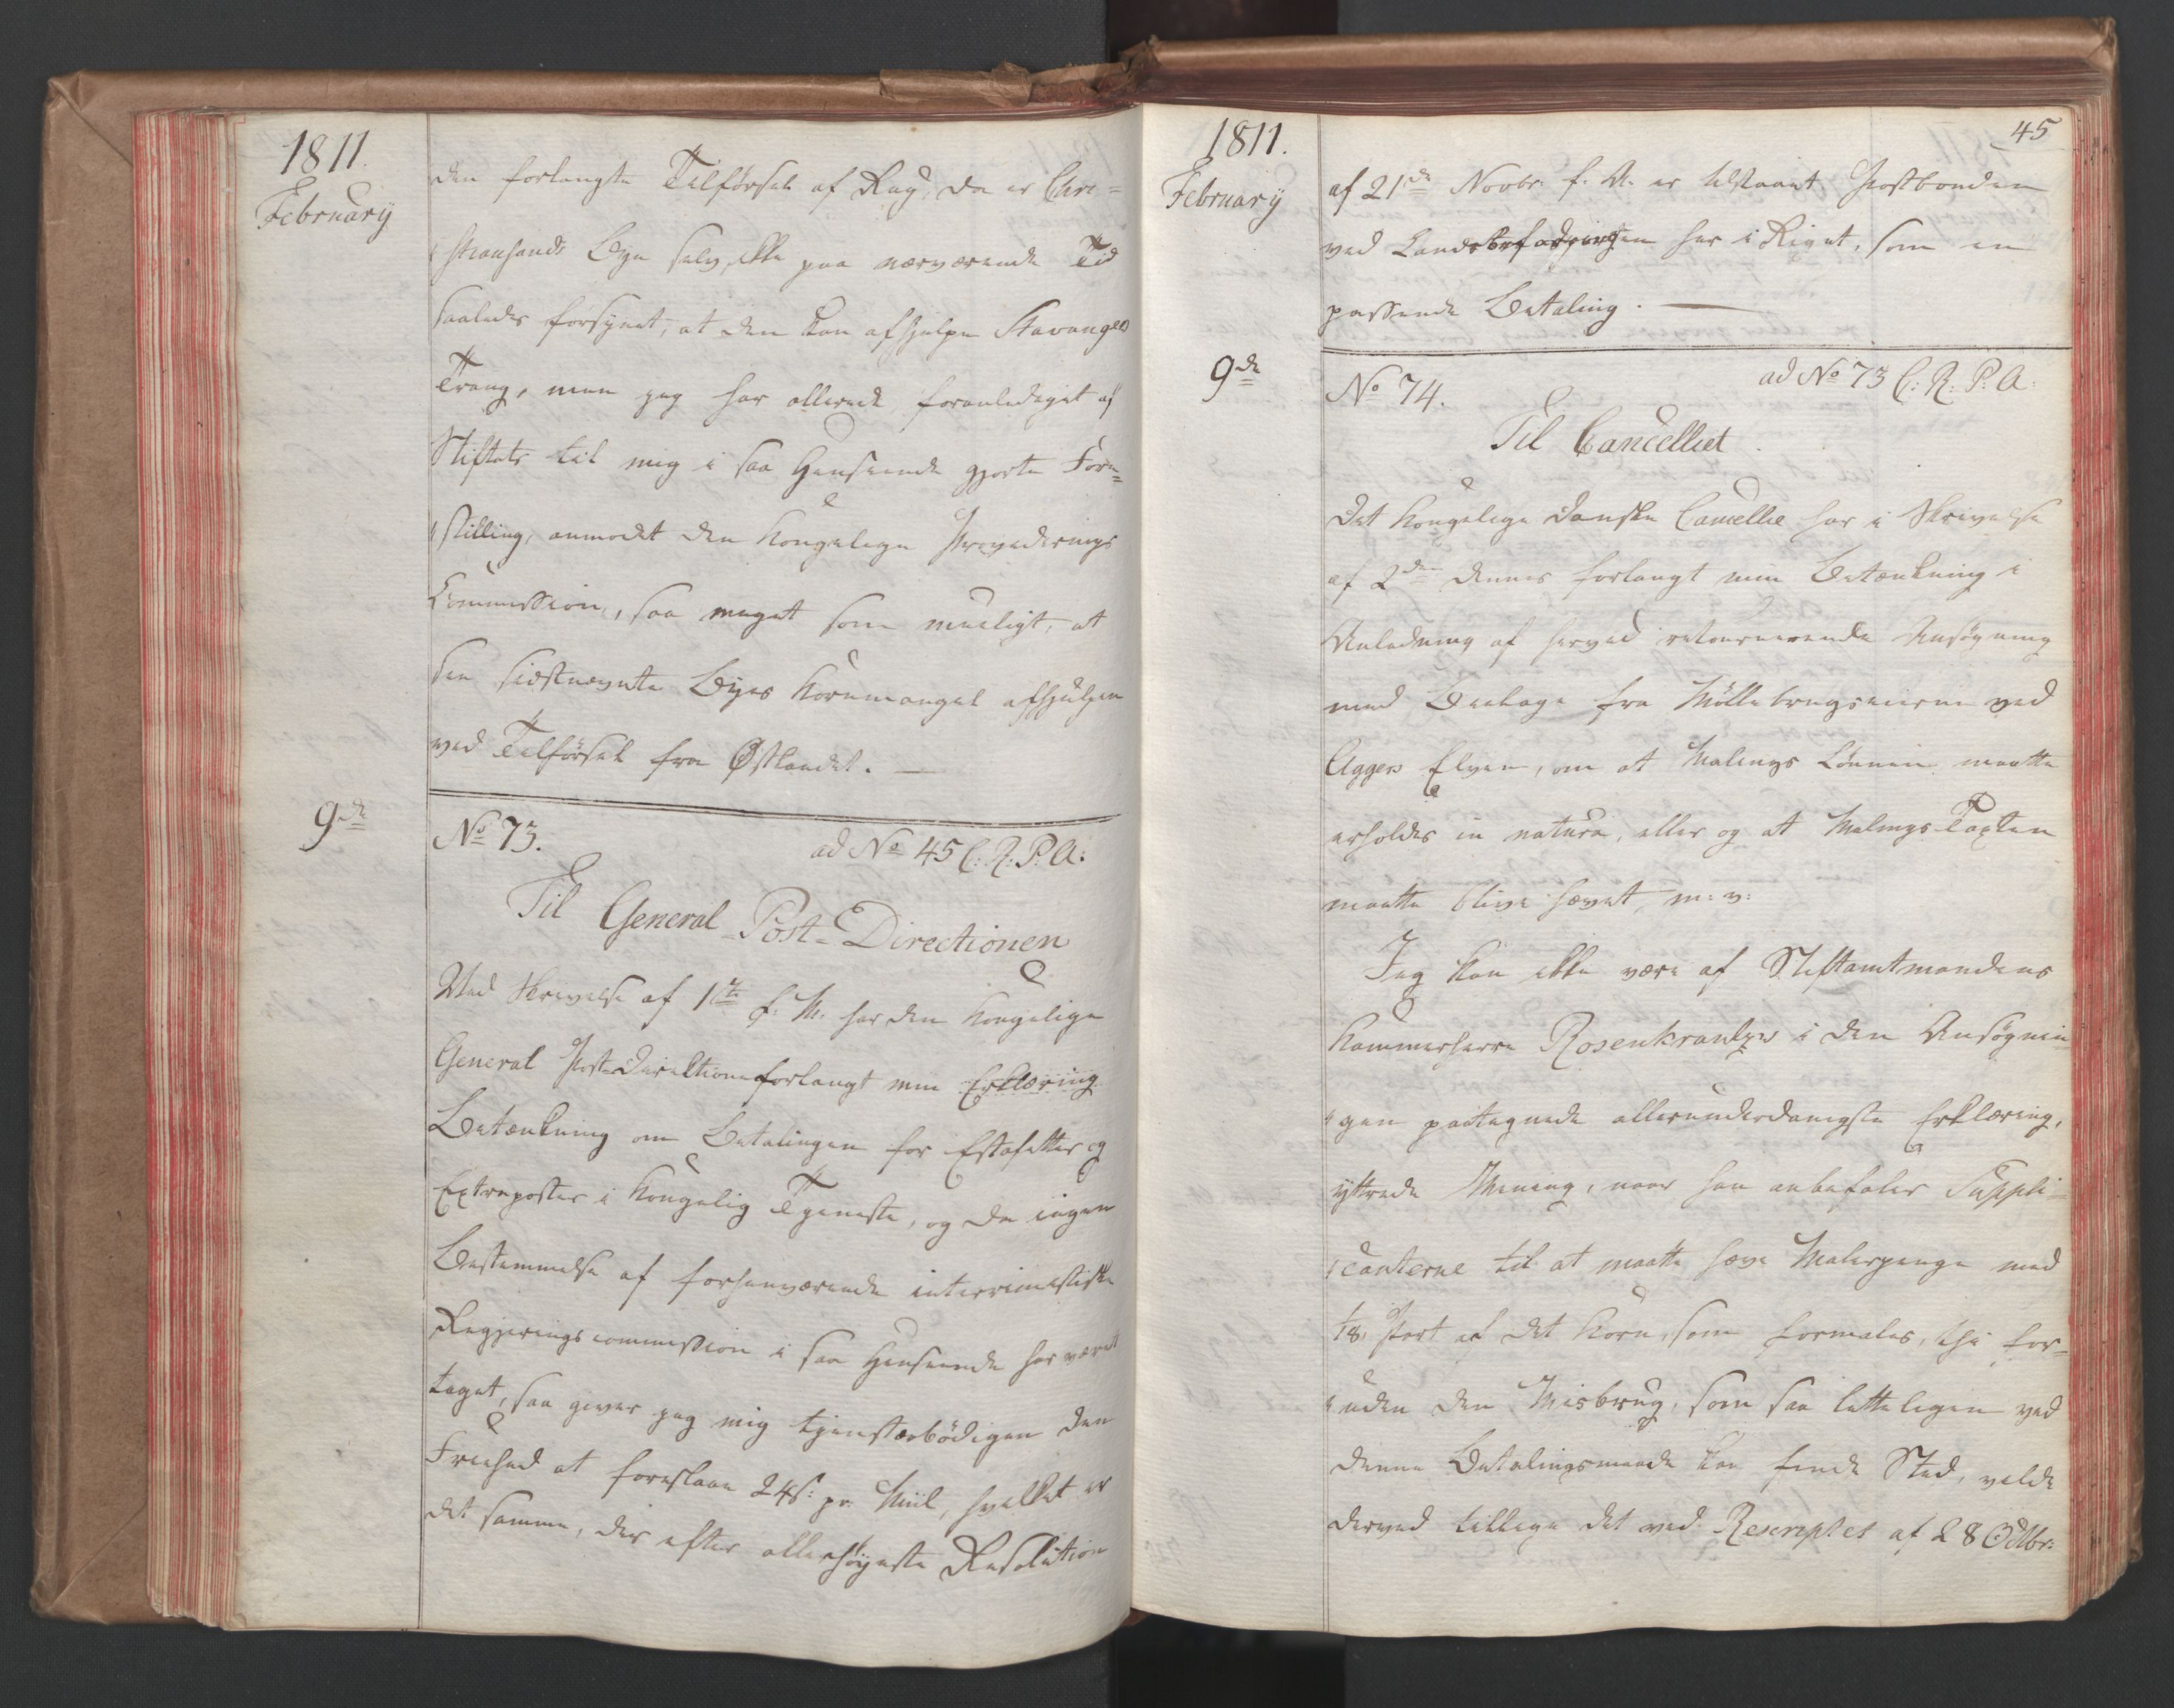 1811.
February
den forlangte Tilførsel af Rug, da er Chri=
stiansands Bye selv, ikke paa nærværende Tid
saaledes forsynet, at den kan afhjelpe Stavangers
Trang, men jeg har allerede, foranlediget af
Stiftets til mig i saa Henseende gjorte Fore=
stilling, anmodet den Kongelige Provederings
Commission, saa meget som mueligt, at
see sidstnævnte Byes Kornmangel afhjulpen
ved Tilførsel fra Østlandet. —
9de
No 73.
ad No 45 C: R: P: A:
Til General-Post-Directionen
Ved Skrivelse af 1ste f: M. har den Kongelige
General Post-Direktion forlangt min Erklæring
Betænkning om Betalingen for Estafetter og
Extraposter i Kongelig Tjeneste, og da ingen
Bestemmelse af forhenværende interimistiske
Regjeringscommission i saa Henseende har været
taget, saa giver jeg mig tjenstærbödigen den
Friehed at foreslaae 24 s: pr. Miil, hvilket er
det samme, der efter allerhöyeste Resolution
1811.
February
45
af 21de Novbr: f: A. er tilstaaet Postbonden
ved Landebefordringen her i Riget, som en
passende Betaling. —
9de
No 74.
ad No 73 C: R: P: A:
Til Cancelliet.
Det Kongelige danske Cancellie har i Skrivelse
af 2den dennes forlangt min Betænkning i
Anledning af herved retournerende Ansøgning
med Beelage fra Møllebrugseierne ved
Aggers Elven, om at Malings Lönnen maatte
erholdes in natura, eller og at Malings Taxten
maatte blive hævet, m: v:
Jeg kan ikke være af Stiftamtmandens
Kammerherre Rosenkrantzes i den Ansøgnin
gen paategnede allerunderdanigste Erklæring,
yttrede Mening, naar han anbefaler Suppli=
canterne til at maatte hæve Malepenge med
1/18 Part af det Korn, som formales, thi for=
uden den Misbrug, som saa letteligen ved
denne Betalingsmaade kan finde Sted, vilde
derved tillige det ved Rescriptet af 28 Octbr: